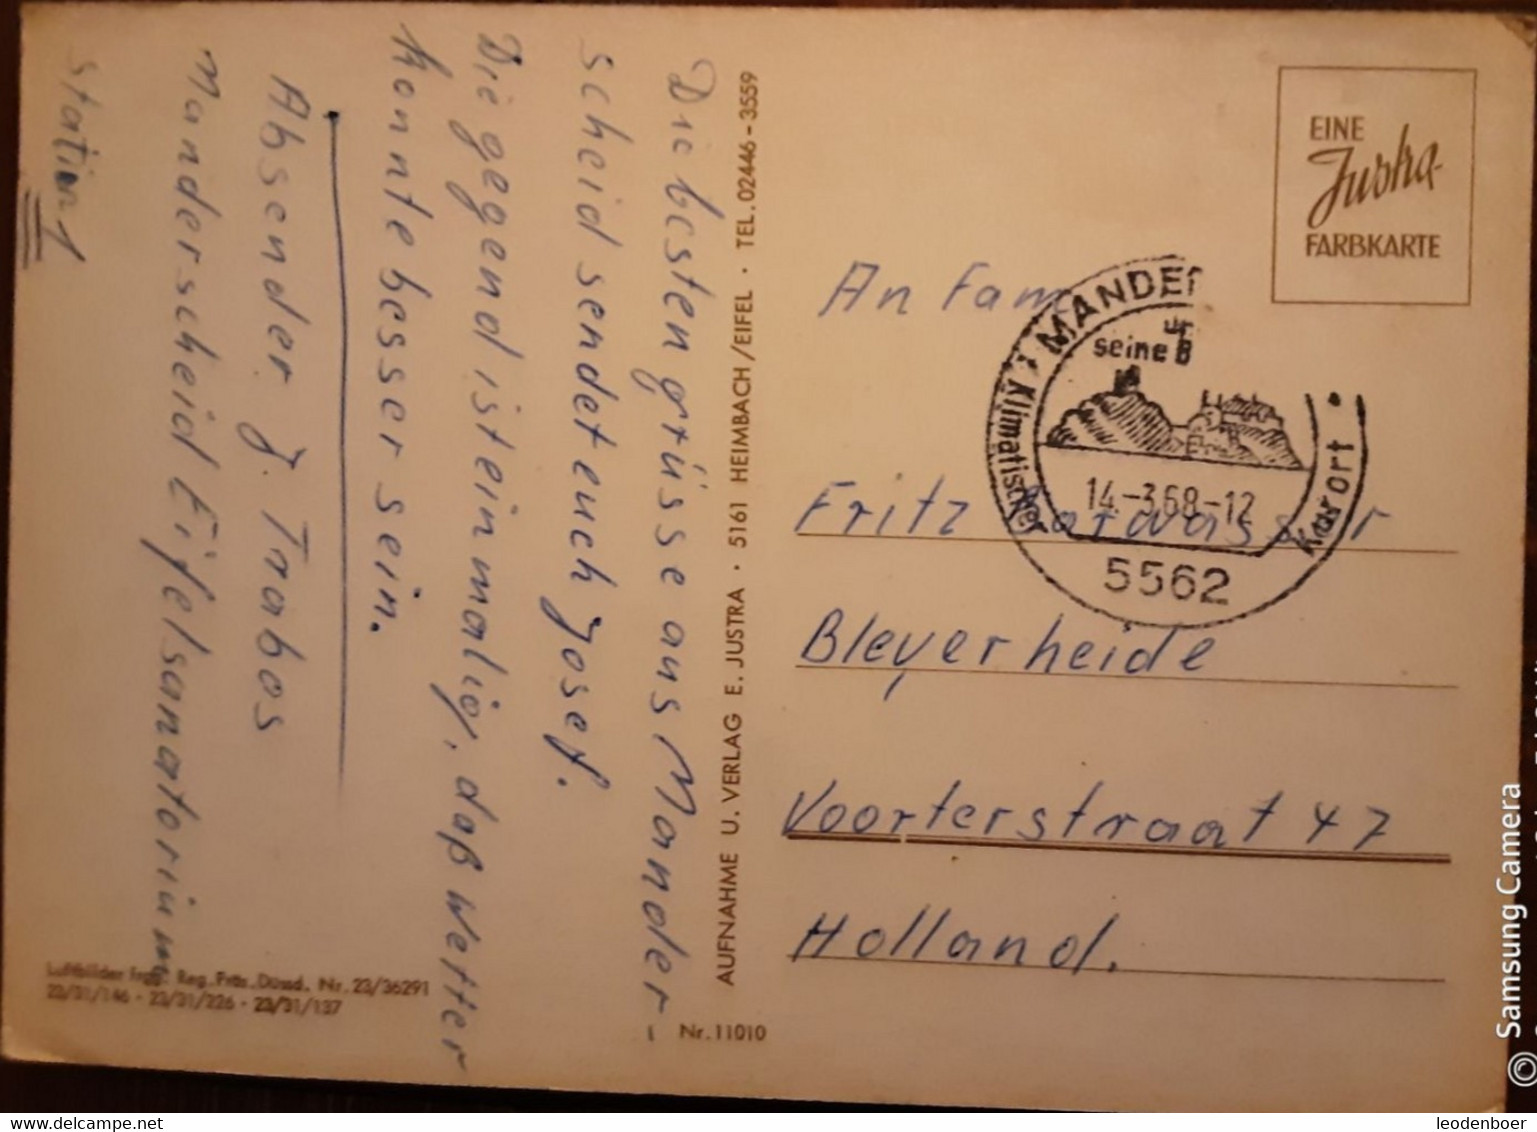 Die besten grüsse aus Mander
scheid sendet euch Josef.
Die gegend ist einmalig, daß wetter
konnte besser sein.
Absender J. Trabos
Manderscheid Eifelsanatorium
Station 1
AUFNAHME U. VERLAG E. JUSTRA · 5161 HEIMBACH/EIFEL · TEL. 02446-3559
Luftbilder frgg. Reg. Präs. Düssd. Nr. 23/36291
23/31/146 · 23/31/226 · 23/31/137
Nr. 11010
EINE
Justra
FARBKARTE
An Fam
MANDER
seine B
Klimatischer Kurort
14.-3.68-12
5562
Fritz
Bleyerheide
Voorterstraat 47
Holland.
© Samsung Camera
leodenboer